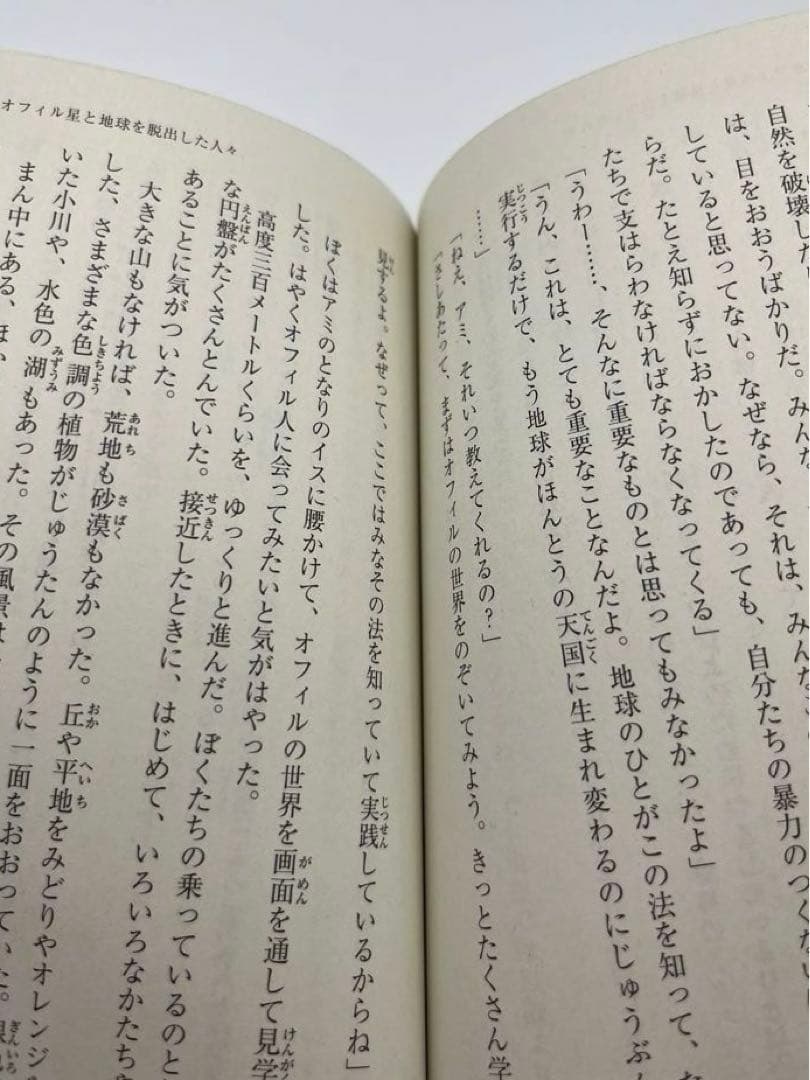 自然を破壊した
は、目をおおうばかりだ。みんな
していると思ってない。なぜなら、それは、みんな
らだ。たとえ知らずにおかしたのであっても、自分たちの暴力のつくない
たちで支はらわなければならなくなってくる」
「うわー……、そんなに重要なものとは思ってもみなかったよ」
「うん、これは、とても重要なことなんだよ。地球のひとがこの法を知って、
実行するだけで、もう地球がほんとうの天国に生まれ変わるのにじゅうぶん
……」
「ねえ、アミ、それいつ教えてくれるの?」
「さしあたって、まずはオフィルの世界をのぞいてみよう。きっとたくさん学
オフィル星と地球を脱出した人々
見するよ。なぜって、ここではみなその法を知っていて実践しているからね」
ぼくはアミのとなりのイスに腰かけて、オフィルの世界を画面を通して見学
した。はやくオフィル人に会ってみたいと気がはやった。
高度三百メートルくらいを、ゆっくりと進んだ。ぼくたちの乗っているのと
な円盤がたくさんとんでいた。接近したときに、はじめて、いろいろなかたち
あることに気がついた。
大きな山もなければ、荒地も砂漠もなかった。丘や平地をみどりやオレンジ
した、さまざまな色調の植物がじゅうたんのように一面をおおっていた。
いた小川や、水色の湖もあった。その風景は
まん中にある、